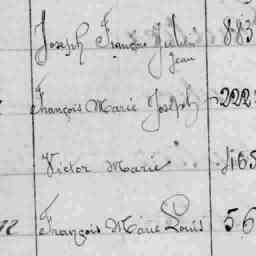 Joseph François Jules 883
Jean
François Marie Joseph 222
Victor Marie 165
François Marie Louis 56